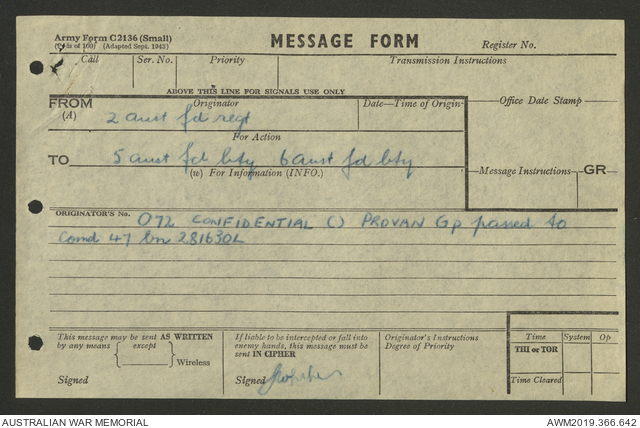 Army Form C2136 (Small)
(Pads of 100) (Adapted Sept. 1943)
MESSAGE FORM
Register No.
Call Ser. No. Priority Transmission Instructions
ABOVE THIS LINE FOR SIGNALS USE ONLY
FROM Originator Date—Time of Origin Office Date Stamp
(A) 2 aust fd regt
For Action
TO 5 aust fd bty 6 aust fd bty
(w) For Information (INFO.) Message Instructions GR
ORIGINATOR'S No. O72 CONFIDENTIAL () PROVAN Gp passed to
Comd 47 bn 281630L
This message may be sent AS WRITTEN
by any means except
Wireless
Signed
If liable to be intercepted or fall into
enemy hands, this message must be
sent IN CIPHER
Signed
Originator's Instructions
Degree of Priority
Time System Op
THI or TOR
Time Cleared
AUSTRALIAN WAR MEMORIAL
AWM2019.366.642